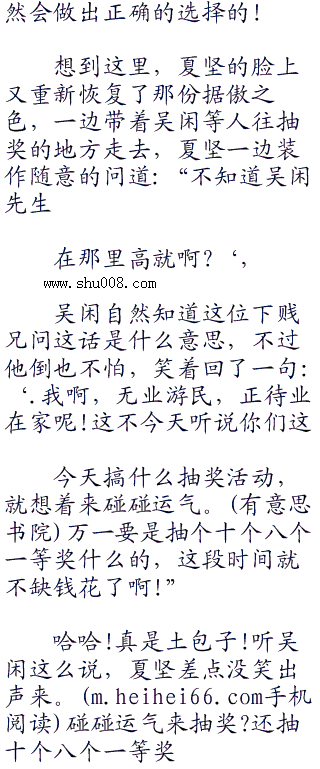 然会做出正确的选择的!
想到这里，夏坚的脸上
又重新恢复了那份据傲之
色，一边带着吴闲等人往抽
奖的地方走去，夏坚一边装
作随意的问道:“不知道吴闲
先生
在那里高就啊？‘，
www.shu008.com
吴闲自然知道这位下贱
兄问这话是什么意思，不过
他倒也不怕，笑着回了一句:
‘.我啊，无业游民，正待业
在家呢!这不今天听说你们这
今天搞什么抽奖活动，
就想着来碰碰运气。(有意思
书院)万一要是抽个十个八个
一等奖什么的，这段时间就
不缺钱花了啊!”
哈哈!真是土包子!听吴
闲这么说，夏坚差点没笑出
声来。(m.heihei66.com手机
阅读)碰碰运气来抽奖?还抽
十个八个一等奖